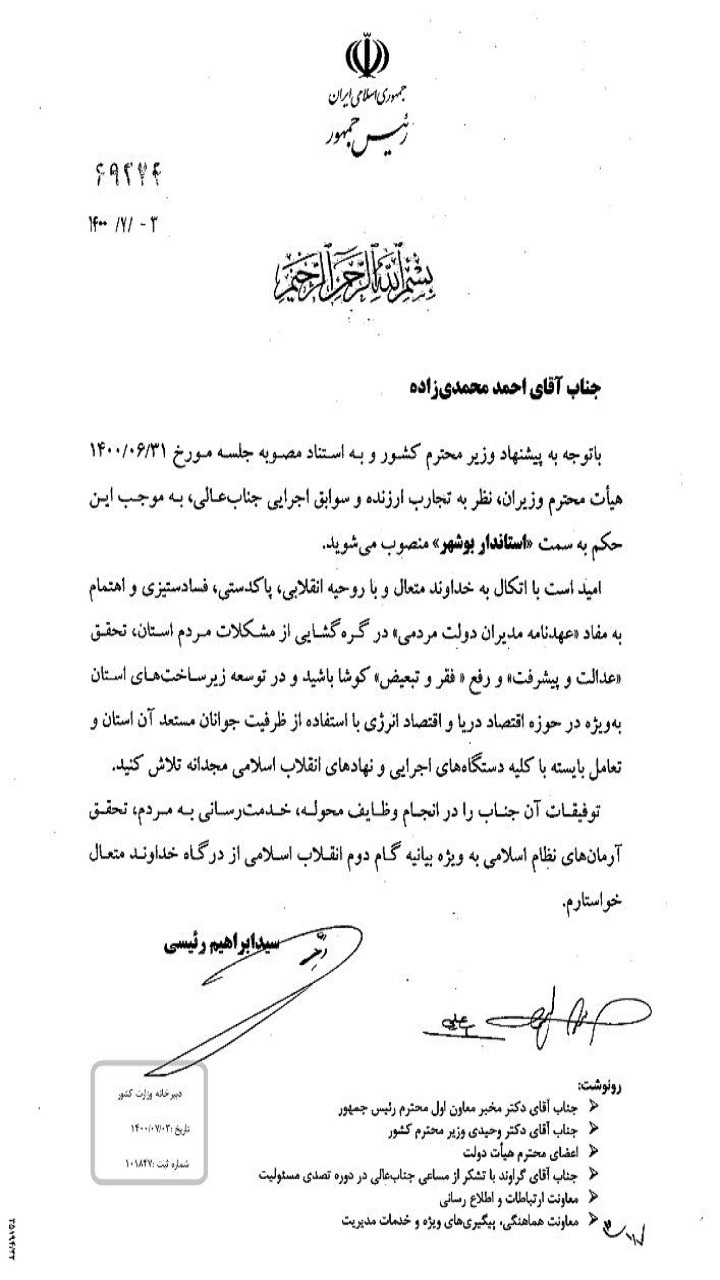 جمهوری اسلامی ایران
رئیس جمهور
۶۹۲۷۴
۱۴۰۰ /۷/ -۳
بسم الله الرحمن الرحیم
جناب آقای احمد محمدی‌زاده
باتوجه به پیشنهاد وزیر محترم کشور و به استناد مصوبه جلسه مورخ ۱۴۰۰/۰۶/۳۱
هیأت محترم وزیران، نظر به تجارب ارزنده و سوابق اجرایی جناب‌عالی، به موجب این
حکم به سمت «استاندار بوشهر» منصوب می‌شوید.
امید است با اتکال به خداوند متعال و با روحیه انقلابی، پاکدستی، فسادستیزی و اهتمام
به مفاد «عهدنامه مدیران دولت مردمی» در گره‌گشایی از مشکلات مردم استان، تحقق
«عدالت و پیشرفت» و رفع « فقر و تبعیض» کوشا باشید و در توسعه زیرساخت‌های استان
به‌ویژه در حوزه اقتصاد دریا و اقتصاد انرژی با استفاده از ظرفیت جوانان مستعد آن استان و
تعامل بایسته با کلیه دستگاه‌های اجرایی و نهادهای انقلاب اسلامی مجدانه تلاش کنید.
توفیقات آن جناب را در انجام وظایف محوله، خدمت‌رسانی به مردم، تحقق
آرمان‌های نظام اسلامی به ویژه بیانیه گام دوم انقلاب اسلامی از درگاه خداوند متعال
خواستارم.
سیدابراهیم رئیسی
رونوشت:
جناب آقای دکتر مخبر معاون اول محترم رئیس جمهور
جناب آقای دکتر وحیدی وزیر محترم کشور
اعضای محترم هیأت دولت
جناب آقای گراوند با تشکر از مساعی جناب‌عالی در دوره تصدی مسئولیت
معاونت ارتباطات و اطلاع رسانی
معاونت هماهنگی، پیگیری‌های ویژه و خدمات مدیریت
دبیرخانه وزارت کشور
تاریخ :۱۴۰۰/۰۷/۰۳
شماره ثبت :۱۰۱۸۴۷